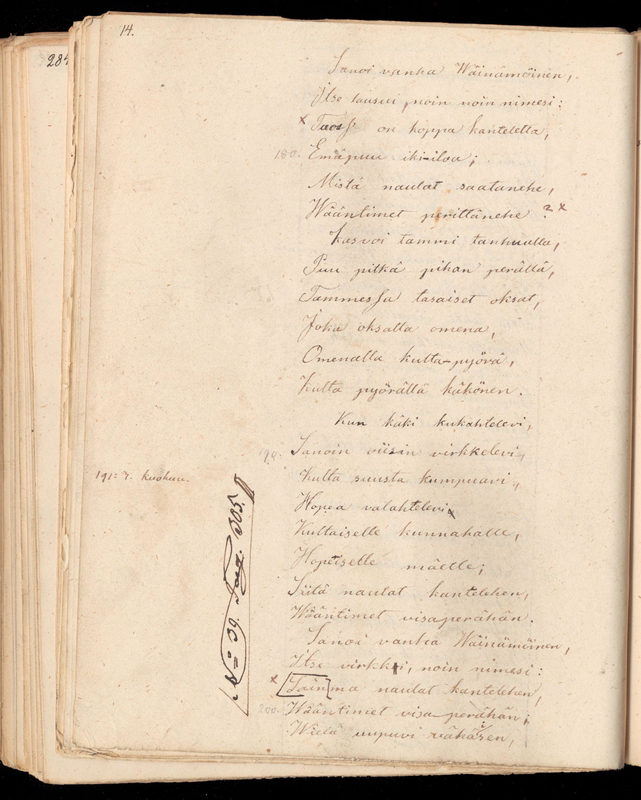 14.
284
Sanoi vanha Wäinämöinen,
Itse lausui, noin noin nimesi:
x on koppa kanteletta,
180. Emäpuu iki-iloa;
Mistä naulat saatanehe,
Wääntimet perittänehe? 2 x
Kasvoi tammi tanhualla,
Puu pitkä pihan perällä,
Tammessa tasaiset oksat,
Joka oksalla omena,
Omenalla kulta-pyörä,
Kulta pyörällä käkönen.
Kun käki kukahtelevi,
190. Sanoin viisin virkkelevi,
191: 7. kuohuu.
Kulta suusta kumpuavi,
Hopea valahtelevi
Kultaiselle kunnahalle,
Hopeiselle mäelle;
Siitä naulat kantelehen,
Wääntimet visaperähän.
Sanoi vanha Wäinämöinen,
Itse virkki, noin nimesi:
x Sainma naulat kantelehen,
200. Wääntimet visa perähän;
Wielä uupuvi vähäsen,